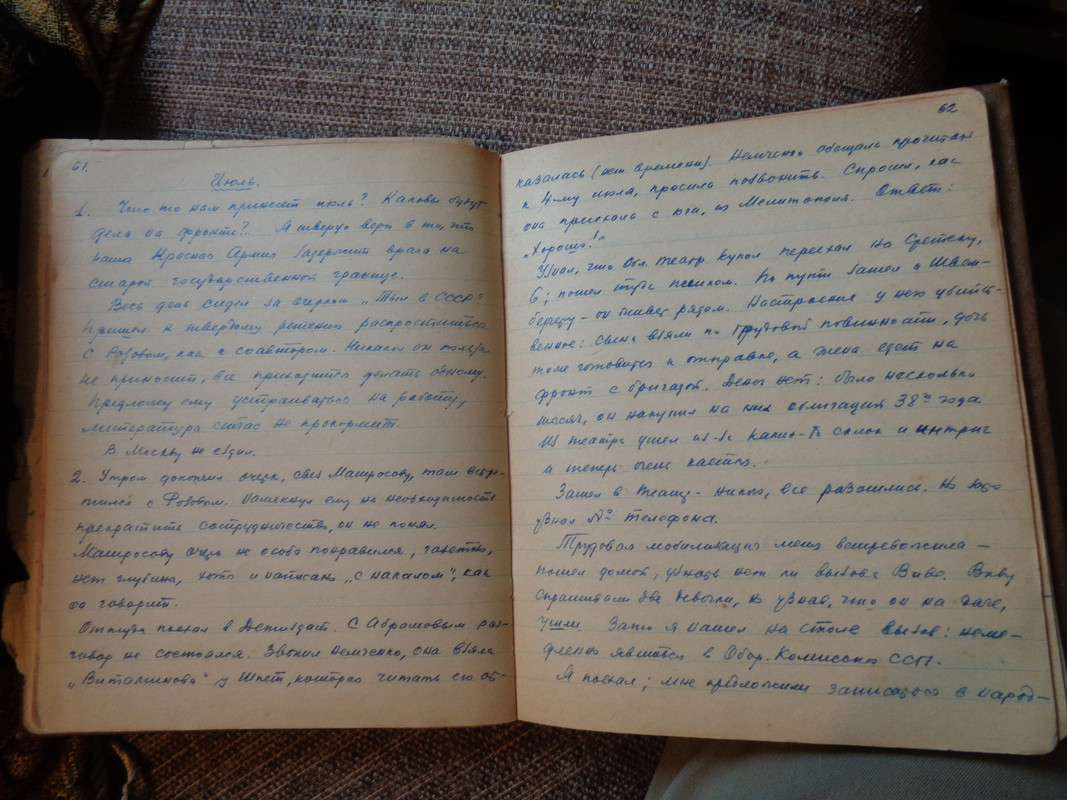 61.
Июль.
1. Что-то нам принесет июль? Каковы будут
дела на фронте?.. Я твердо верю в то, что
наша Красная Армия задержит врага на
старой государственной границе.
Весь день сидел за очерком „Тыл в СССР“
Пришел к твердому решению распроститься
с Розовом, как с соавтором. Никакой он пользы
не приносит, все приходится делать одному.
Предложу ему устраиваться на работу,
литература сейчас не прокормит.
В Москву не ездил.
2. Утром докончил очерк, свез Матросову, там встре-
тился с Розовом. Намекнул ему на необходимость
прекратить сотрудничество, он не понял.
Матросову очерк не особо понравился, газетно,
нет глубины, хотя и написано „с накалом“, как
он говорит.
Оттуда поехал в Детиздат. С Абрамовым раз-
говор не состоялся. Звонил Немченко, она взяла
у Шпет, которая читать его от-
62
казалась (нет времени). Немченко обещала прочитать
к 4-му июля, просила позвонить. Спросил, как
она приехала с юга, из Мелитополя. Ответ:
„Хорошо!“
Узнал, что Обл. театр кукол переехал на Сретенку,
6; пошел туда пешком. По пути зашел к Швем-
бергеру - он живет рядом. Настроение у него убийст-
венное: сына взяли по трудовой повинности, дочь
тоже готовится к отправке, а жена едет на
фронт с бригадой. Денег нет: было несколько
тысяч, он накупил на них облигаций 38го года
Из театра ушел из-за каких-то склок и интриг
и теперь очень кается.
Зашел в театр - никого, все разошлись. Но
узнал № телефона.
Трудовая мобилизация меня встревожила -
пошел домой, узнать нет ли вызова Виве. Виву
спрашивали две девочки, но узнав, что он на даче,
ушли. Зато я нашел на столе вызов: неме-
дленно явиться в Обор. Комиссию ССП.
Я поехал; мне предложили записаться в народ-